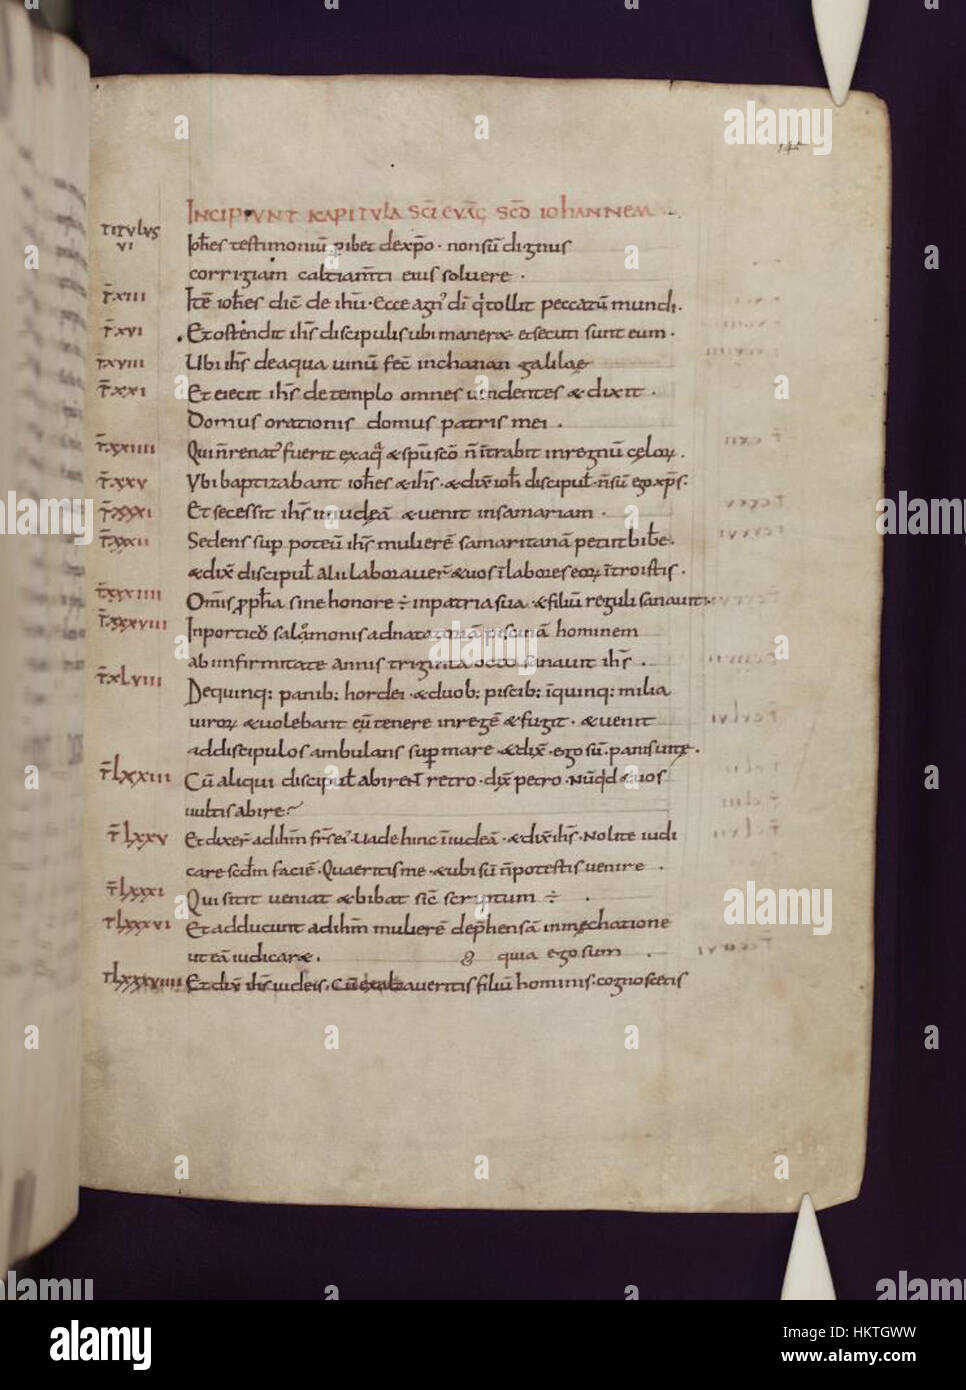 INCIPIUNT KAPITVLA SC̄I EVAG̅ SCD̅ IOHANNEM
TITVLVS VI Ioh̅es testimoniū p̱ibet dexp̄o · nonsū dignus
corrigiam caltiam̅ti eius soluere ·
T̅XIII Itē ioh̅es dic̄ de ihū · Ecce agn' dī q' tollit peccatū mundi.
T̅XVI Et ostendit ihs̄ discipulis ubi maner& et secuti sunt eum ·
T̅XVIII Ubi ihs̄ deaqua uinū fec̄ in chanan galilae
T̅XXI Et eiecit ihs̄ de templo omnes uendentes & dixit ·
Domus orationis domus patris mei .
T̅XXIIII Qui n̄ renat' fuerit exaq̄ & sp̄u sc̄o n̄ ī trabit in regnū cęloꝝ.
T̅XXV Vbi baptizabant ioh̅es & ihs̄ · & dix̄ ioh̅ discipul̄ · n̄ sū ego xp̄s·
T̅XXXI Et secessit ihs̄ in iudeā & uenit insamariam ·
T̅XXXII Sedens sup̱ poteū ihs̄ mulierē samaritanā petiit bib̄e.
& dix̄ discipul̄ Alii laborauer̄ & uos ī labores eoꝝ ītroistis.
T̅XXXIIII Om̄is p̱ph̅a sine honore ÷ inpatria sua · & filiū reguli sanauit·
T̅XXXVIII Inporticū salamonis adnatatoriā piscinā hominem
ab infirmitate annis triginta octo sanauit ihs̄ .
T̅XLVIII De quinq; panib; hordei · & duob; piscib; ī quinq; milia
uiroꝝ & uolebant eū tenere in regē & fugit · & uenit
addiscipulos ambulans sup̱ mare · & dix̄ · ego sū panis uitę.
T̅LXXIII Cū aliqui discipul̄ abirent retro · dix̄ petro · Nūq̇d & uos
uultis abire
T̅LXXV Et dixer̄ ad ihm̄ fr̄s ei' · Uade hinc ī iudeā · & dix̄ ihs̄ · Nolite iudi
care scd̄m faciē · Quaeritis me · & ubi sū n̄ potestis uenire .
T̅LXXXI Qui sitit ueniat & bibat sic̄ scriptum ÷ .
T̅LXXXVI Et adducunt ad ihm̄ mulierē dep̱hensā in męchatione
ut eā iudicar&. quia ego sum .
T̅LXXXVIIII Et dix̄ ihs̄ iudeis · Cū exaltaueritis filiū hominis · cognoscetis
alamy
alamy
alamy
alamy
alamy
Image ID: HKTGWW
www.alamy.com